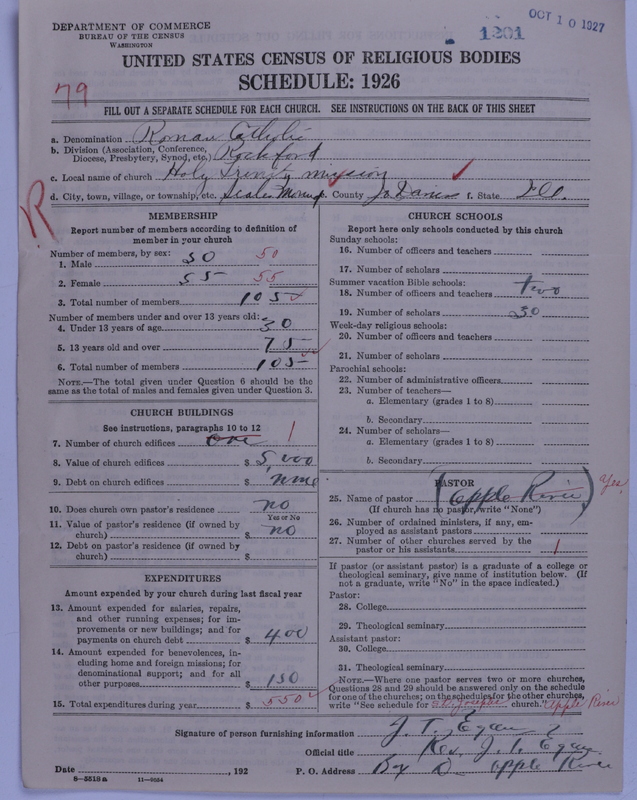 DEPARTMENT OF COMMERCE
BUREAU OF THE CENSUS
WASHINGTON
1201
OCT 10 1927
UNITED STATES CENSUS OF RELIGIOUS BODIES
SCHEDULE: 1926
79
FILL OUT A SEPARATE SCHEDULE FOR EACH CHURCH. SEE INSTRUCTIONS ON THE BACK OF THIS SHEET
a. Denomination Roman Catholic
b. Division (Association, Conference, Diocese, Presbytery, Synod, etc.) Rockford
c. Local name of church Holy Trinity mission
d. City, town, village, or township, etc. Scales Mound County Jo Daviess f. State Ill.
R
MEMBERSHIP
Report number of members according to definition of
member in your church
Number of members, by sex:
1. Male 50 50
2. Female 55 55
3. Total number of members 105
Number of members under and over 13 years old:
4. Under 13 years of age 30
5. 13 years old and over 75
6. Total number of members 105
NOTE.—The total given under Question 6 should be
same as the total of males and females given under Question 3.
CHURCH BUILDINGS
See instructions, paragraphs 10 to 12
7. Number of church edifices one 1
8. Value of church edifices $ 5,000
9. Debt on church edifices $ none
10. Does church own pastor's residence no
Yes or No
11. Value of pastor's residence (if owned by
church) $ no
12. Debt on pastor's residence (if owned by
church) $
EXPENDITURES
Amount expended by your church during last fiscal year
13. Amount expended for salaries, repairs,
and other running expenses; for im-
provements or new buildings; and for
payments on church debt $ 400
14. Amount expended for benevolences, in-
cluding home and foreign missions; for
denominational support; and for all
other purposes $ 150
15. Total expenditures during year $ 550
CHURCH SCHOOLS
Report here only schools conducted by this church
Sunday schools:
16. Number of officers and teachers
17. Number of scholars
Summer vacation Bible schools:
18. Number of officers and teachers two
19. Number of scholars 30
Week-day religious schools:
20. Number of officers and teachers
21. Number of scholars
Parochial schools:
22. Number of administrative officers
23. Number of teachers—
a. Elementary (grades 1 to 8)
b. Secondary
24. Number of scholars—
a. Elementary (grades 1 to 8)
b. Secondary
PASTOR
25. Name of pastor (Apple River) Yes
(If church has no pastor, write "None")
26. Number of ordained ministers, if any, em-
ployed as assistant pastors
27. Number of other churches served by the
pastor or his assistants 1
If pastor (or assistant pastor) is a graduate of a college or
theological seminary, give name of institution below. (If
not a graduate, write "No" in the space indicated.)
Pastor:
28. College
29. Theological seminary
Assistant pastor:
30. College
31. Theological seminary
NOTE.—Where one pastor serves two or more churches,
Questions 28 and 29 should be answered only on the schedule
for one of the churches; on the schedules for the other churches,
write "See schedule for St. Josephs church." Apple River
Signature of person furnishing information J. T. Egan
Official title Rev. J. T. Egan
Date , 192 P. O. Address Box D Apple River
8—5518a 11—9054